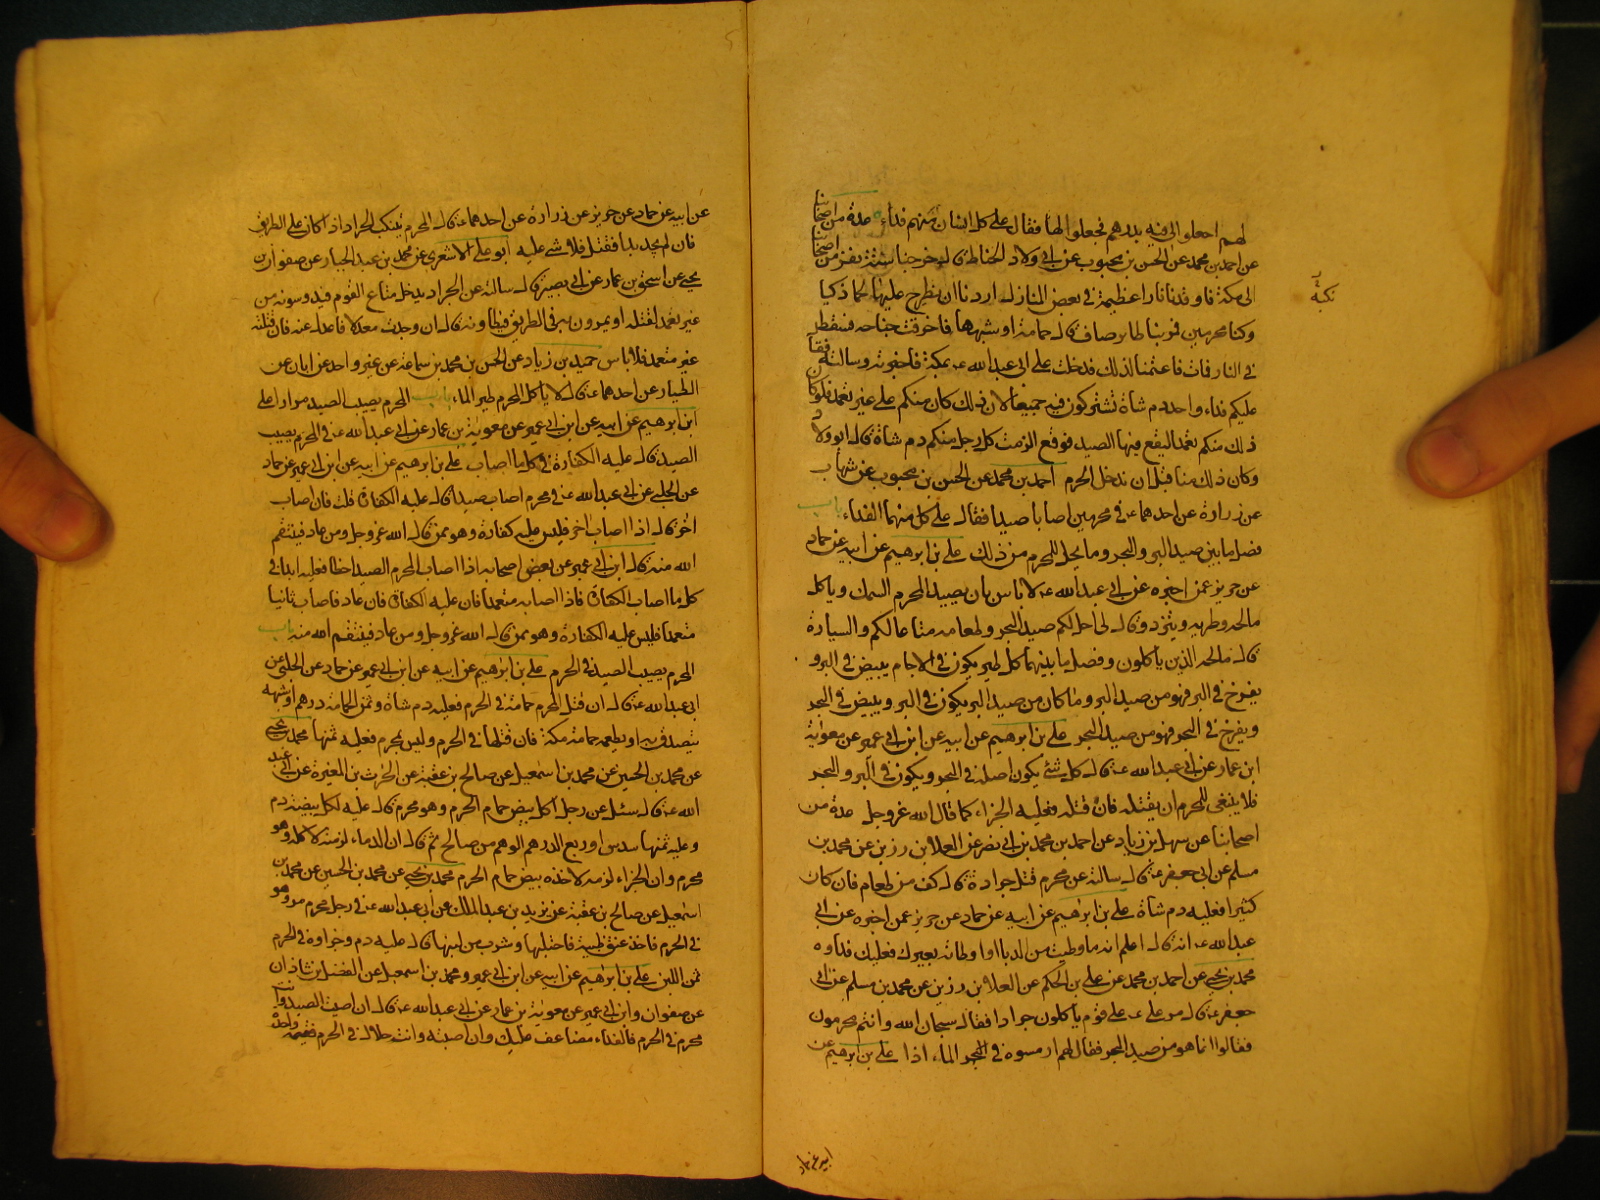 لهم اجعلوا الى فيه بدرهم فجعلوا لها فقال على كل انسان منهم فداء عدة من اصحابنا
عن احمد بن محمد عن الحسن بن محبوب عن ابى ولاد الحناط قال خرجنا ستة نفر من اصحابنا
الى مكة فاوقدنا نارا عظيمة فى بعض المنازل اردنا ان نطرح عليها لحما ذكيا
وكنا محرمين فمر بنا طاير صاف قال حمامة او شبهها فاحرقت جناحه فسقط
فى النار فمات فاغتمنا لذلك فدخلت على ابى عبدالله عه بمكة فاخبرته وسالته فقال
عليكم فداء واحد دم شاة تشتركون فيه جميعا لان ذلك كان منكم على غير تعمد فلو كان
ذلك منكم تعمدا ليقع فيها الصيد فوقع الزمت كل رجل منكم دم شاة قال ابو ولاد
وكان ذلك منا قبل ان ندخل الحرم احمد بن محمد عن الحسن بن محبوب عن شهاب
عن زرارة عن احدهما عه فى محرمين اصابا صيدا فقال على كل منهما الفداء باب
فصل ما بين صيد البر والبحر وما يحل للمحرم من ذلك على بن ابرهيم عن ابيه عن حماد
عن حريز عمن اخبره عن ابى عبدالله عه لا باس بان يصيد المحرم السمك وياكل
مالحه وطريه ويتزود وقال احل لكم صيد البحر وطعامه متاعا لكم وللسيارة
قال مالحه الذين ياكلون وفصل ما بينهما كل طير يكون فى الاجام يبيض فى البر و
يفرخ فى البر فهو من صيد البر وما كان من صيد البر يكون فى البر ويبيض فى البحر
ويفرخ فى البحر فهو من صيد البحر على بن ابرهيم عن ابيه عن ابن ابى عمير عن معوية
ابن عمار عن ابى عبدالله عه قال كل شئ يكون اصله فى البحر ويكون فى البر والبحر
فلا ينبغى للمحرم ان يقتله فان قتله فعليه الجزاء كما قال الله عز وجل عدة من
اصحابنا عن سهل بن زياد عن احمد بن محمد بن ابى نصر عن العلا بن رزين عن محمد بن
مسلم عن ابى جعفر عه قال سالته عن محرم قتل جرادة قال كف من طعام فان كان
كثيرا فعليه دم شاة على بن ابرهيم عن ابيه عن حماد عن حريز عمن اخبره عن ابى
عبدالله عه انه قال اعلم انه ما وطيت من الدبا او اوطاته بعيرك فعليك فداؤه
محمد بن يحيى عن احمد بن محمد عن على بن الحكم عن العلا بن رزين عن محمد بن مسلم عن ابى
جعفر عه قال مر على عه على قوم ياكلون جرادا فقال سبحان الله وانتم محرمون
فقالوا انما هو من صيد البحر فقال لهم ارمسوه فى البحر الماء اذا على بن ابرهيم عن
ابيه عن حماد
عن ابيه عن حماد عن حريز عن زرارة عن احدهما عه قال المحرم يتنكب الجراد اذا كان على الطريق
فان لم يجد بدا فقتل فلا شى عليه ابو على الاشعرى عن محمد بن عبد الجبار عن صفوان بن
يحيى عن اسحق بن عمار عن ابى بصير قال سالته عن الجراد يدخل متاع القوم فيدوسونه من
غير تعمد لقتله او يمرون به فى الطريق فيطاونه قال ان وجدت معدلا فاعدل عنه فان قتلته
غير متعمد فلا باس حميد بن زياد عن الحسن بن محمد بن سماعة عن غير واحد عن ابان عن
الطيار عن احدهما عه قال لا ياكل المحرم طير الماء باب المحرم يصيب الصيد مرارا على
ابن ابرهيم عن ابيه عن ابن ابى عمير عن معوية بن عمار عن ابى عبدالله عه فى المحرم يصيب
الصيد قال عليه الكفارة فى كل ما اصاب على بن ابرهيم عن ابيه عن ابن ابى عمير عن حماد
عن الحلبى عن ابى عبدالله عه فى محرم اصاب صيدا قال عليه الكفارة قلت فان اصاب
اخر قال اذا اصاب اخر فليس عليه كفارة وهو ممن قال الله عز وجل ومن عاد فينتقم
الله منه قال ابن ابى عمير عن بعض اصحابه اذا اصاب المحرم الصيد خطا فعليه ابدا فى
كل ما اصاب الكفارة فاذا اصابه متعمدا فان عليه الكفارة فان عاد فاصاب ثانيا
متعمدا فليس عليه الكفارة وهو ممن قال الله عز وجل ومن عاد فينتقم الله منه باب
المحرم يصيب الصيد فى الحرم على بن ابرهيم عن ابيه عن ابن ابى عمير عن حماد عن الحلبى عن
ابى عبدالله عه قال ان قتل المحرم حمامة فى الحرم فعليه دم شاة وثمن الحمامة درهم او شبهه
يتصدق به او يطعمه حمامة مكة فان قتلها فى الحرم وليس بمحرم فعليه ثمنها محمد بن يحيى
عن محمد بن الحسين عن محمد بن اسمعيل عن صالح بن عقبة عن الحرث بن المغيرة عن ابى عبد
الله عه قال سئل عن رجل اكل بيض حمام الحرم وهو محرم قال عليه لكل بيضة دم
وعليه ثمنها سدس او ربع الدرهم الوهم من صالح ثم قال ان الدماء لزمته لاكله وهو
محرم وان الجزاء لزمه لاخذه بيض حمام الحرم محمد بن يحيى عن محمد بن الحسين عن محمد بن
اسمعيل عن صالح بن عقبة عن يزيد بن عبد الملك عن ابى عبدالله عه فى رجل محرم مر وهو
فى الحرم فاخذ عنق ظبية فاحتلبها وشرب من لبنها قال عليه دم وجزاوه فى الحرم
ثمن اللبن على بن ابرهيم عن ابيه عن ابن ابى عمير ومحمد بن اسمعيل عن الفضل بن شاذان
عن صفوان وابن ابى عمير عن معوية بن عمار عن ابى عبدالله عه قال ان اصبت الصيد وانت
محرم فى الحرم فالفداء مضاعف عليك وان اصبته وانت حلال فى الحرم فقيمة واحدة